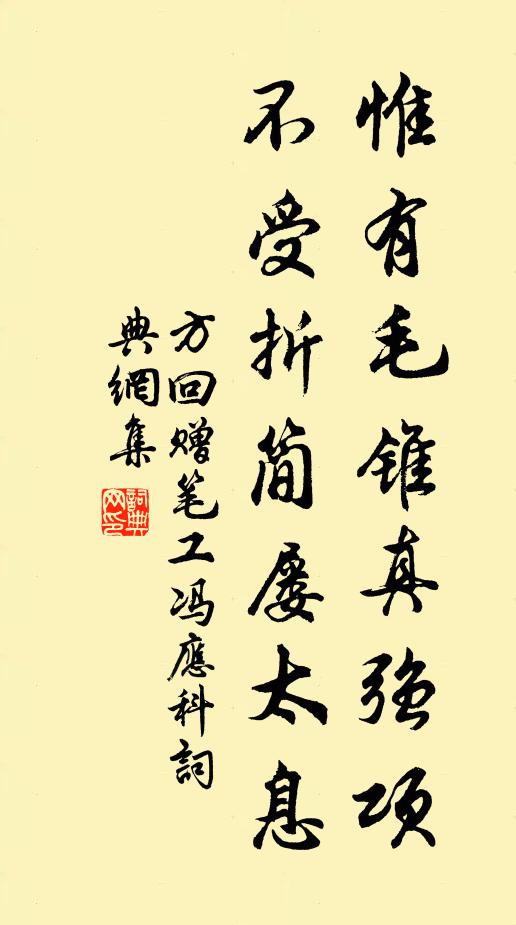 惟有毛锥真强项
不受折简屡太息
方回赠笔工冯應科詞
典網集
詞典網印